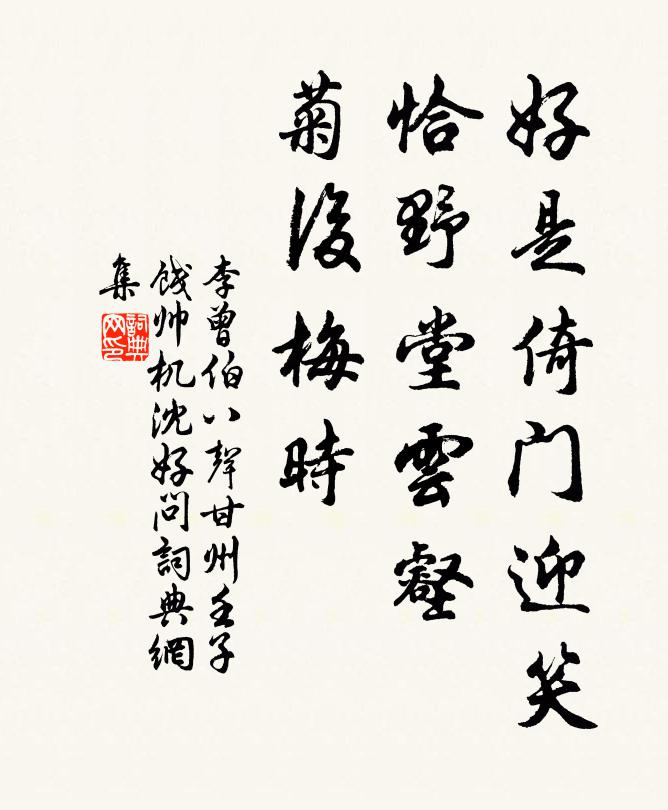 好是倚门迎笑
恰野堂雲壑
菊後梅時
李曾伯八聲甘州壬子
餞帅机沈好问詞典網
集
詞典
网印